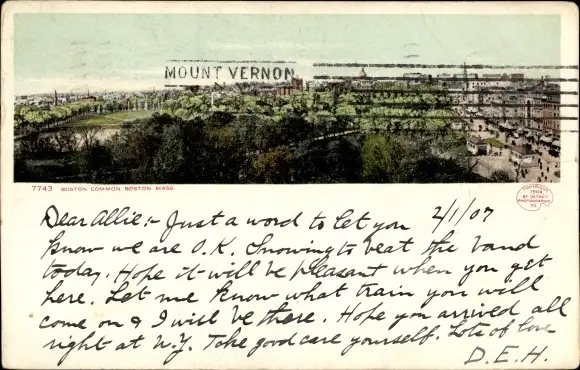 MOUNT VERNON
7743 BOSTON COMMON, BOSTON, MASS.
COPYRIGHT 1904 BY DETROIT PHOTOGRAPHIC CO.
2/1/07
Dear Allie:- Just a word to let you
know we are O.K. Snowing to beat the band
today. Hope it will be pleasant when you get
here. Let me know what train you will
come on & I will be there. Hope you arrived all
right at N.Y. Take good care yourself. Lots of love
D.E.H.